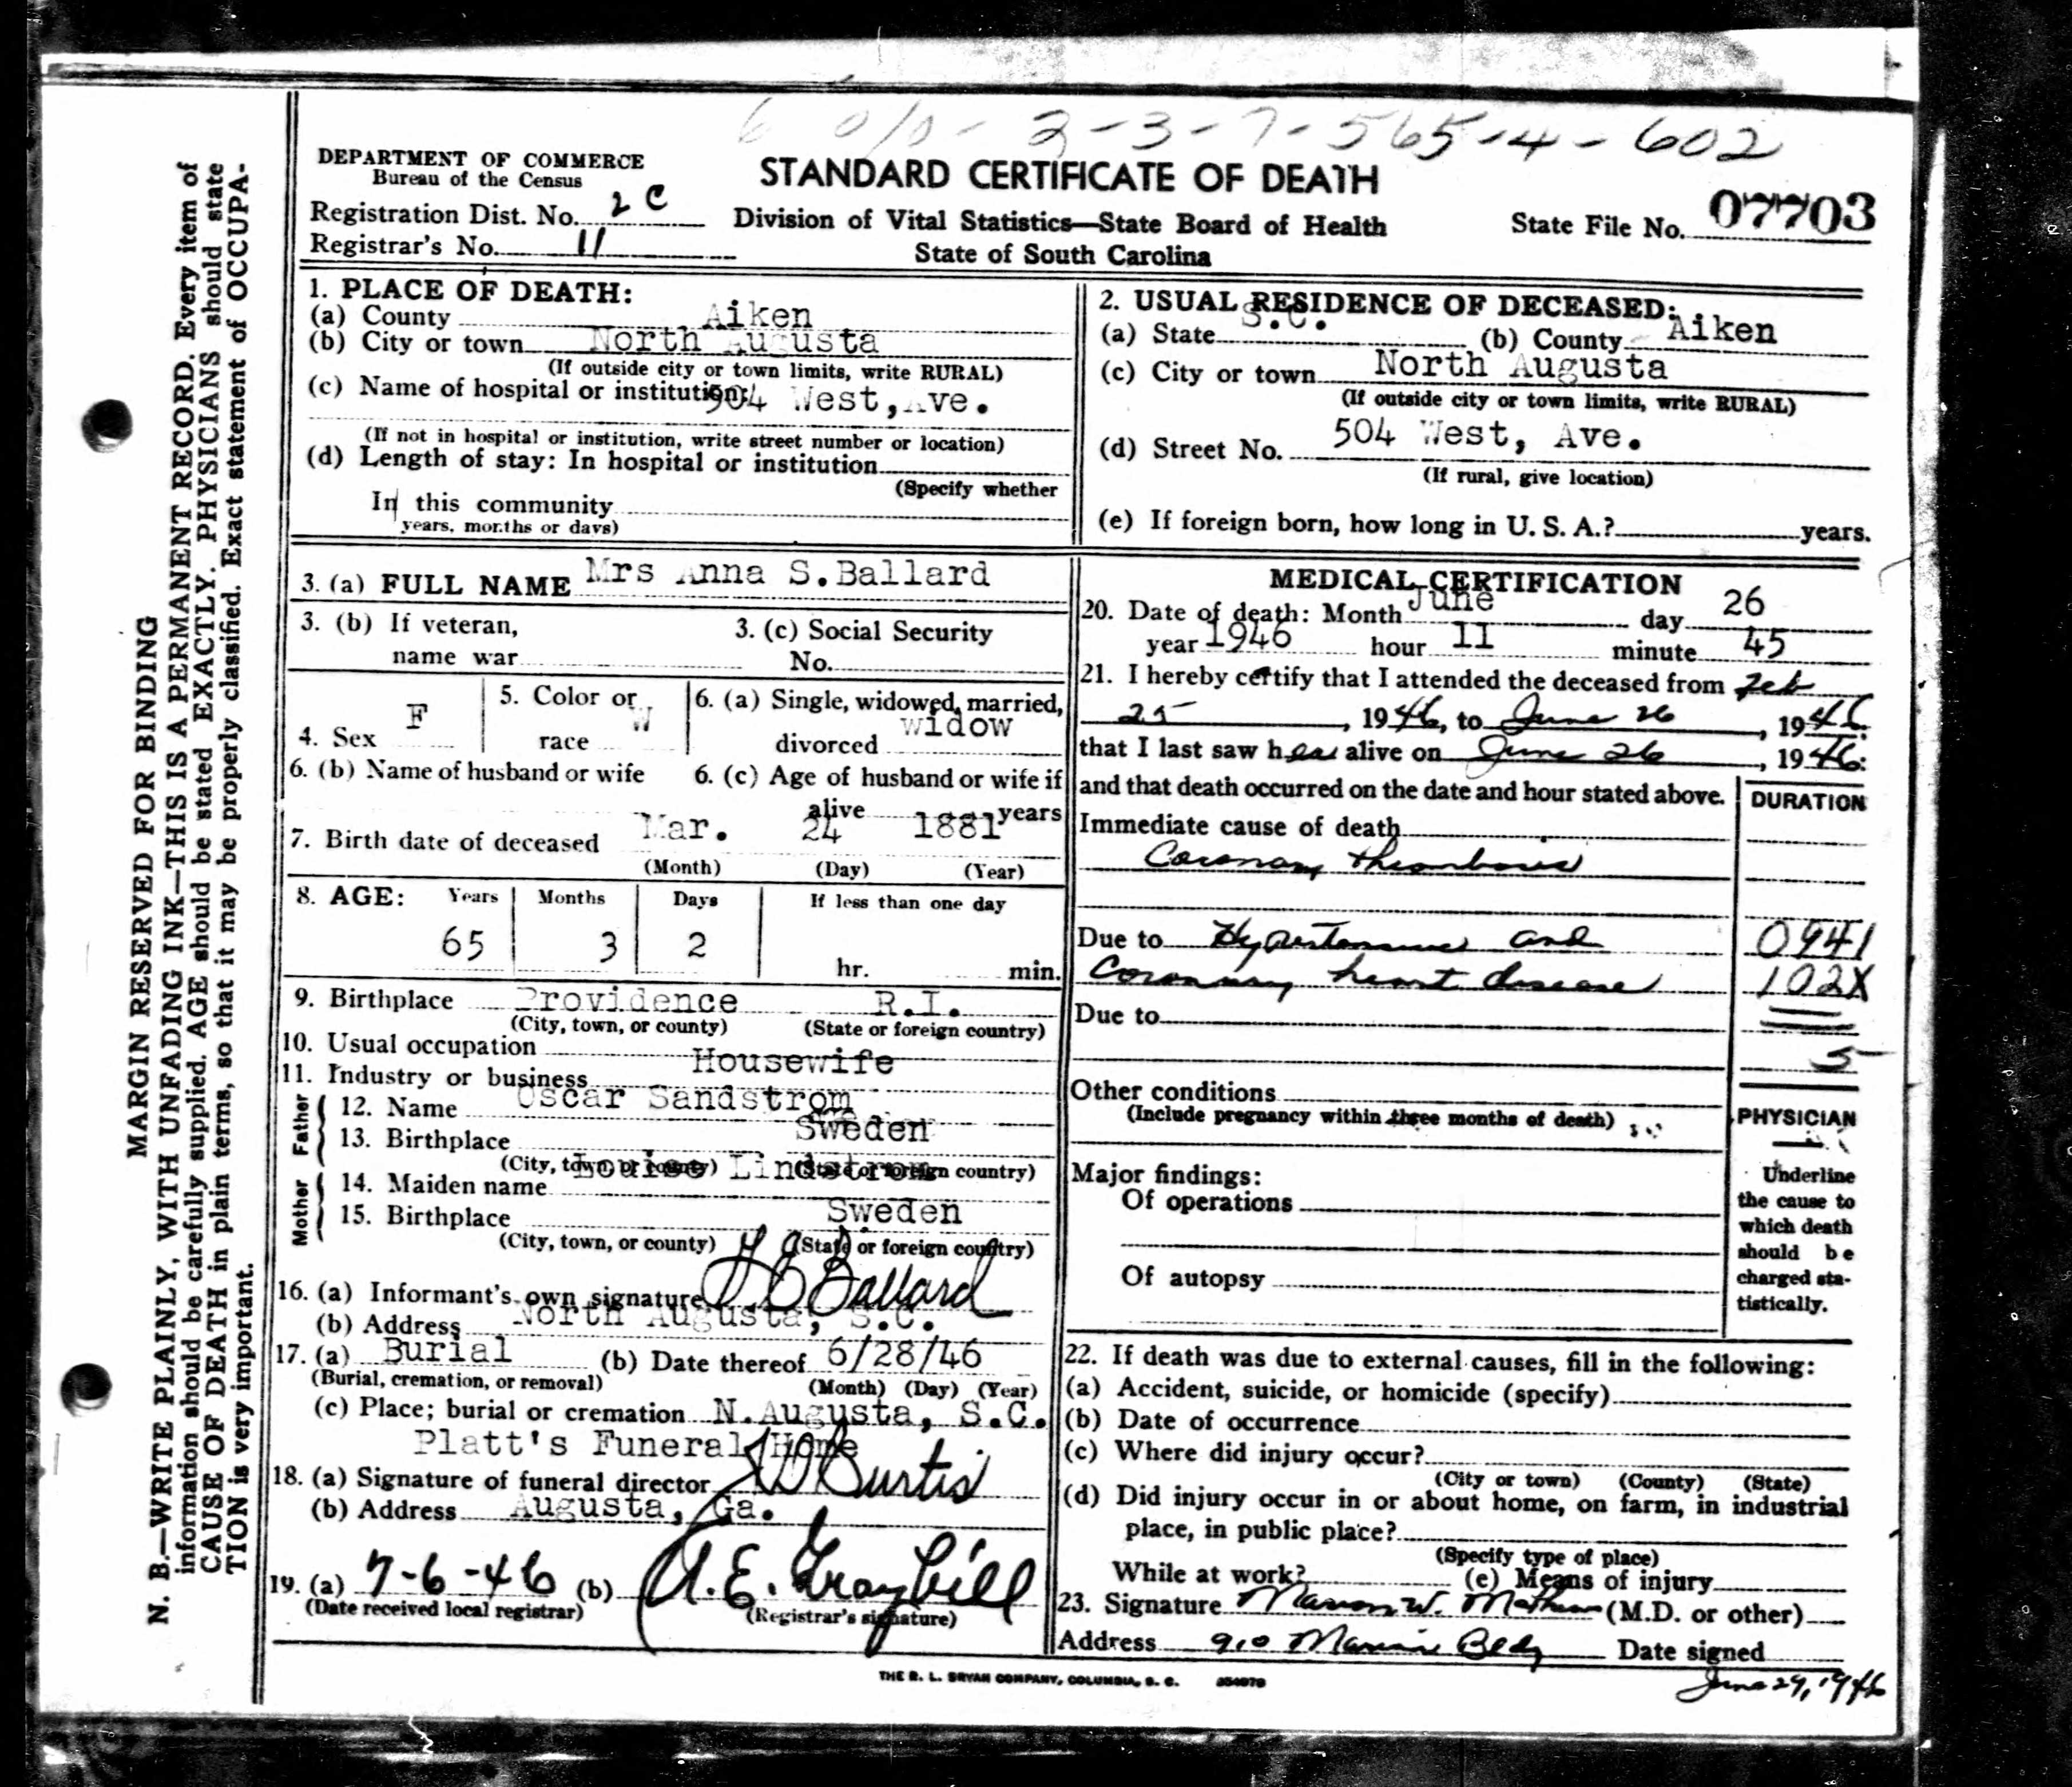 6 0/0 - 2-3-7-565-4-602
DEPARTMENT OF COMMERCE
Bureau of the Census
STANDARD CERTIFICATE OF DEATH
Registration Dist. No. 2 C
Division of Vital Statistics—State Board of Health
State File No. 07703
Registrar's No. 11
State of South Carolina
MARGIN RESERVED FOR BINDING
N. B.—WRITE PLAINLY, WITH UNFADING INK—THIS IS A PERMANENT RECORD. Every item of
information should be carefully supplied. AGE should be stated EXACTLY. PHYSICIANS should state
CAUSE OF DEATH in plain terms, so that it may be properly classified. Exact statement of OCCUPA-
TION is very important.
1. PLACE OF DEATH:
(a) County Aiken
(b) City or town North Augusta
(If outside city or town limits, write RURAL)
(c) Name of hospital or institution: 504 West, Ave.
(If not in hospital or institution, write street number or location)
(d) Length of stay: In hospital or institution
(Specify whether
In this community
years, months or days)
2. USUAL RESIDENCE OF DECEASED:
(a) State S.C. (b) County Aiken
(c) City or town North Augusta
(If outside city or town limits, write RURAL)
(d) Street No. 504 West, Ave.
(If rural, give location)
(e) If foreign born, how long in U. S. A.? years.
3. (a) FULL NAME Mrs Anna S. Ballard
3. (b) If veteran, 3. (c) Social Security
name war No.
4. Sex F 5. Color or race W 6. (a) Single, widowed, married,
divorced widow
6. (b) Name of husband or wife 6. (c) Age of husband or wife if
alive years
7. Birth date of deceased Mar. 24 1881
(Month) (Day) (Year)
8. AGE: Years Months Days If less than one day
65 3 2 hr. min.
9. Birthplace Providence R.I.
(City, town, or county) (State or foreign country)
10. Usual occupation Housewife
11. Industry or business
Father
12. Name Oscar Sandstrom
13. Birthplace Sweden
(City, town, or county) (State or foreign country)
Mother
14. Maiden name Louise Lindstrom
15. Birthplace Sweden
(City, town, or county) (State or foreign country)
16. (a) Informant's own signature Ballard
(b) Address North Augusta, S.C.
17. (a) Burial (b) Date thereof 6/28/46
(Burial, cremation, or removal) (Month) (Day) (Year)
(c) Place; burial or cremation N. Augusta, S.C.
Platt's Funeral Home
18. (a) Signature of funeral director Burtis
(b) Address Augusta, Ga.
19. (a) 7-6-46 (b) A. E. Graybill
(Date received local registrar) (Registrar's signature)
MEDICAL CERTIFICATION
20. Date of death: Month June day 26
year 1946 hour 11 minute 45
21. I hereby certify that I attended the deceased from Feb
25, 1946, to June 26, 1946
that I last saw her alive on June 26, 1946:
and that death occurred on the date and hour stated above.
DURATION
Immediate cause of death
Coronary thrombosis
Due to Hypertensive and 0941
Coronary heart disease 102X
Due to
5
Other conditions
(Include pregnancy within three months of death)
PHYSICIAN
Major findings:
Of operations
Of autopsy
Underline
the cause to
which death
should be
charged sta-
tistically.
22. If death was due to external causes, fill in the following:
(a) Accident, suicide, or homicide (specify)
(b) Date of occurrence
(c) Where did injury occur?
(City or town) (County) (State)
(d) Did injury occur in or about home, on farm, in industrial
place, in public place?
(Specify type of place)
While at work? (e) Means of injury
23. Signature Marion W. (M.D. or other)
Address 910 Marion Bldg Date signed
June 29, 1946
THE R. L. BRYAN COMPANY, COLUMBIA, S. C.